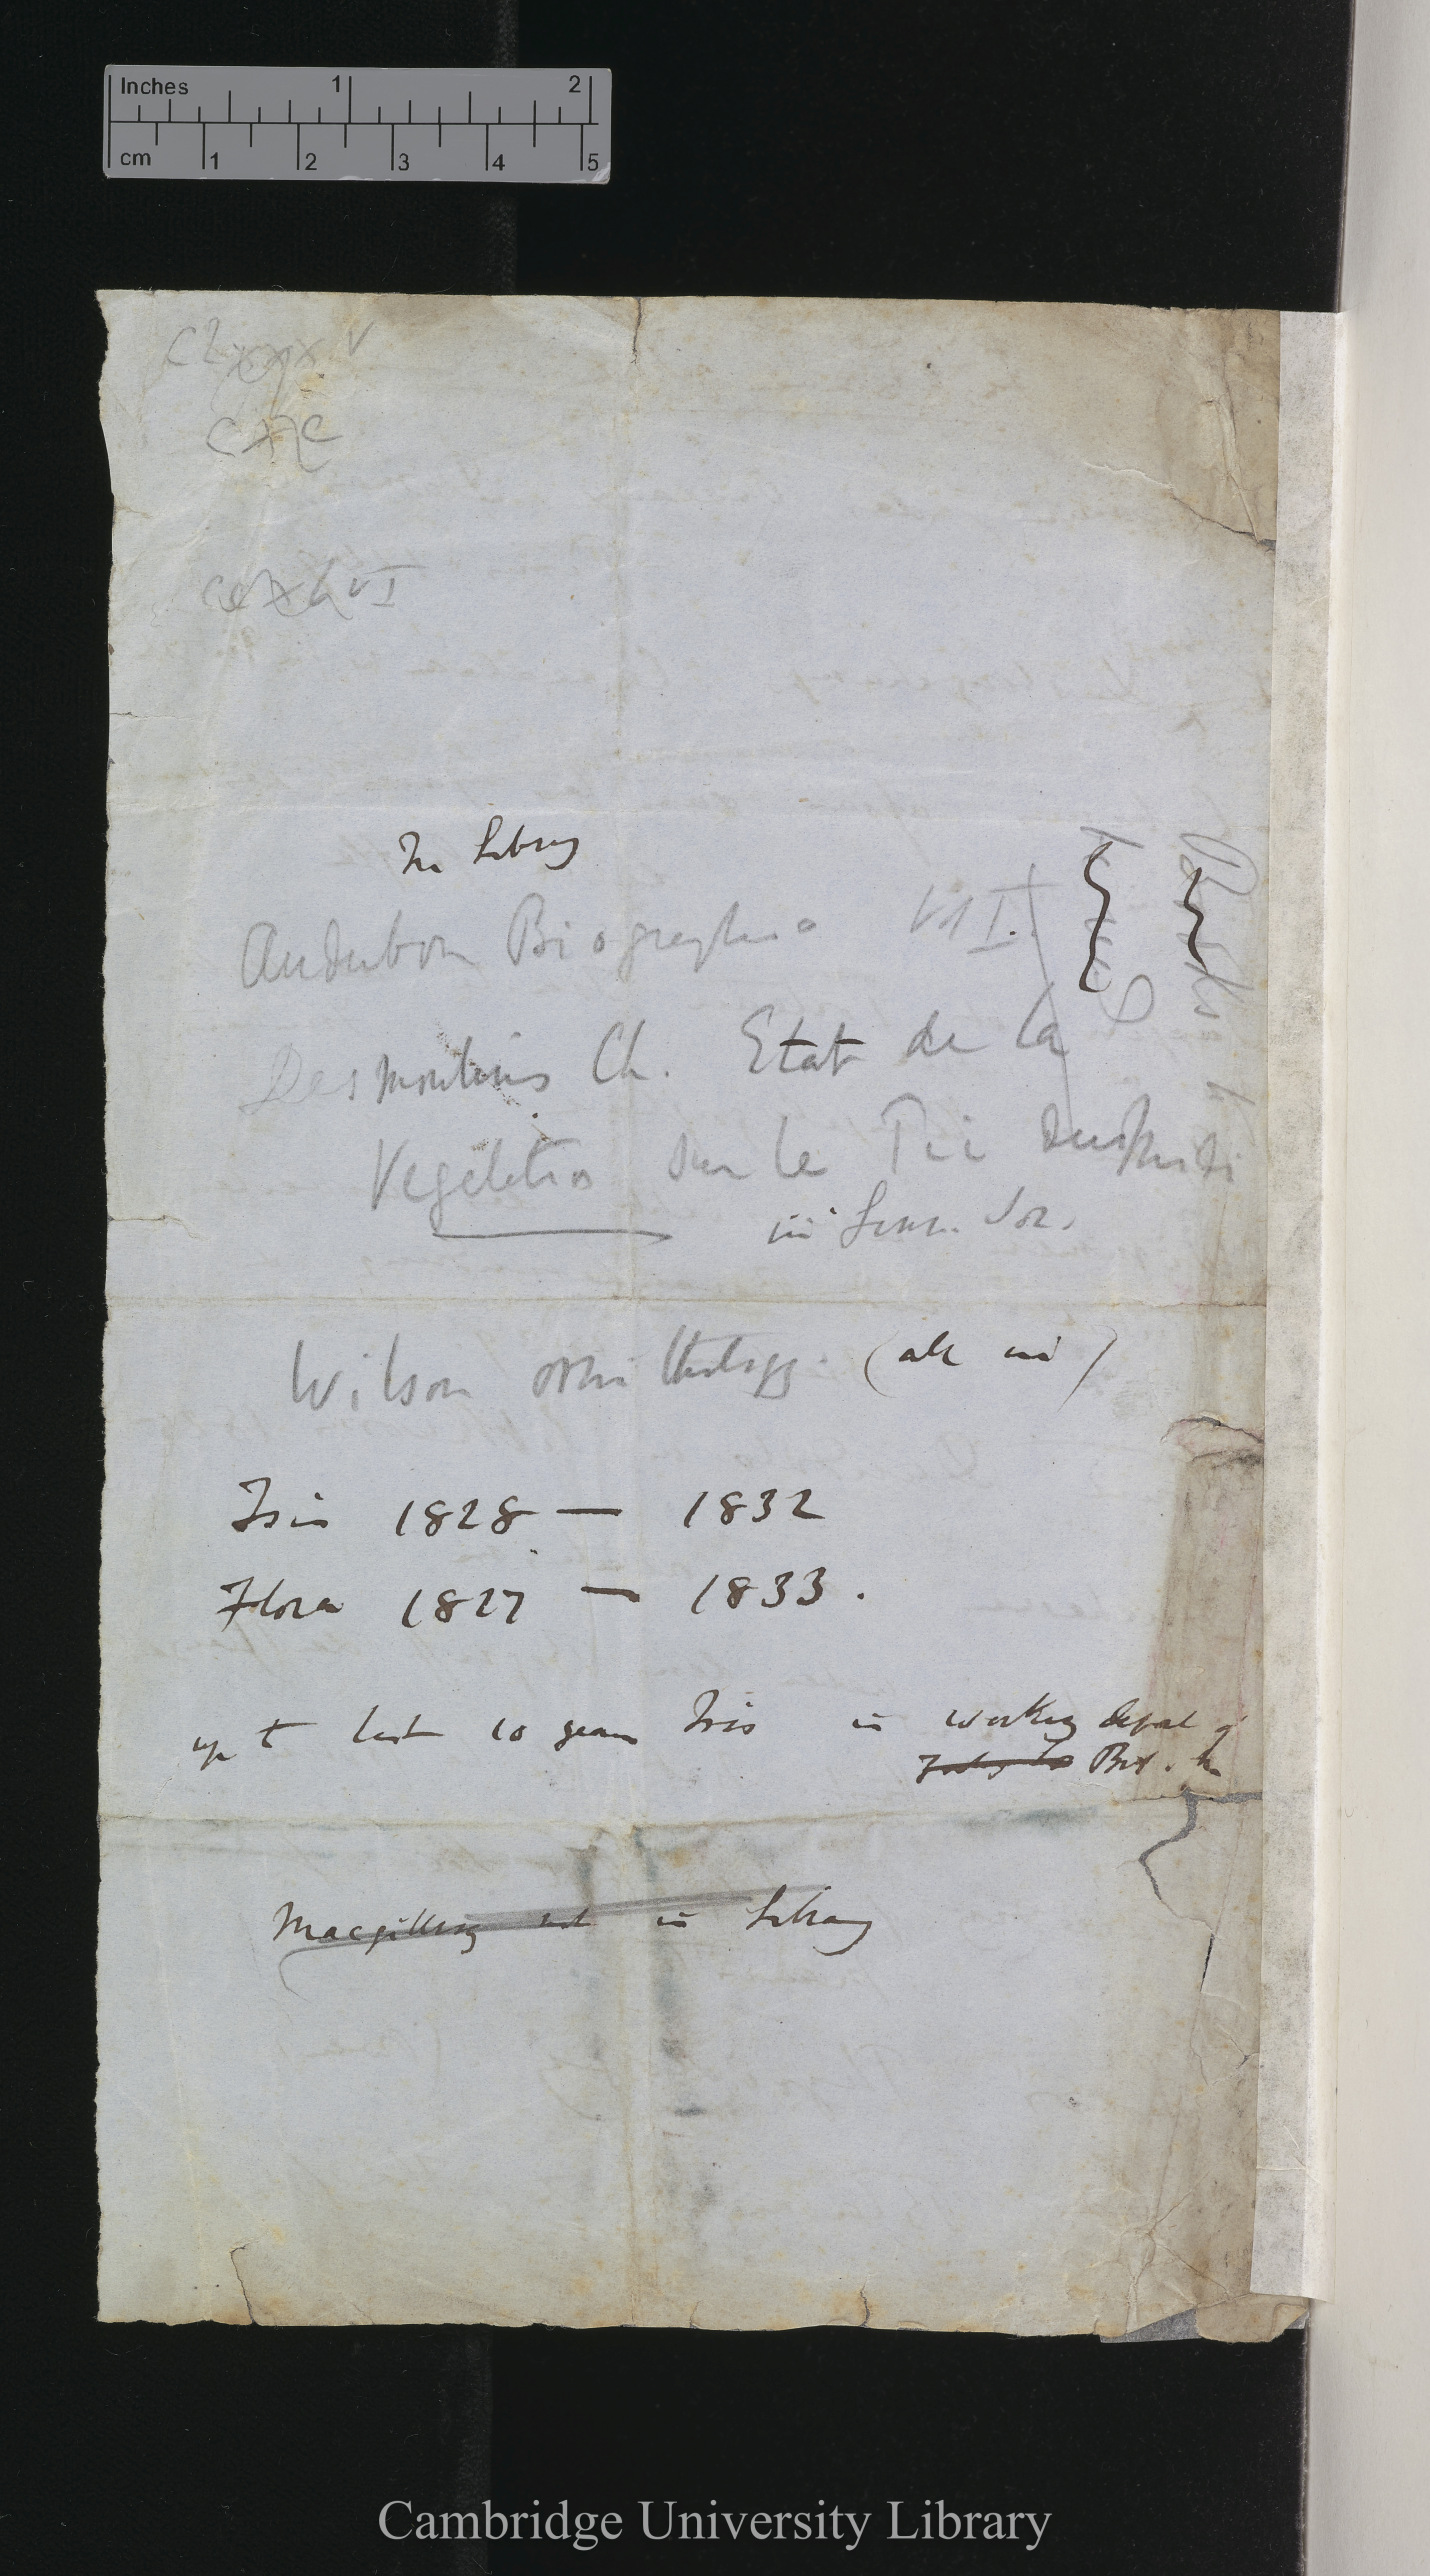 Inches 1 2
cm 1 2 3 4 5
CLXXXV
CXC
CCXLVI
In Library
Audubon Biographia Vol I.
Desmoulins Ch. Etat de la
Vegetation sur le Pic du Midi
in Linn. Soc.
Wilson Ornithology. (all in)
Isis 1828 — 1832
Flora 1827 — 1833.
up t last 10 years Isis in working depart of
Brit. M
Macgillivray not in Library
Cambridge University Library